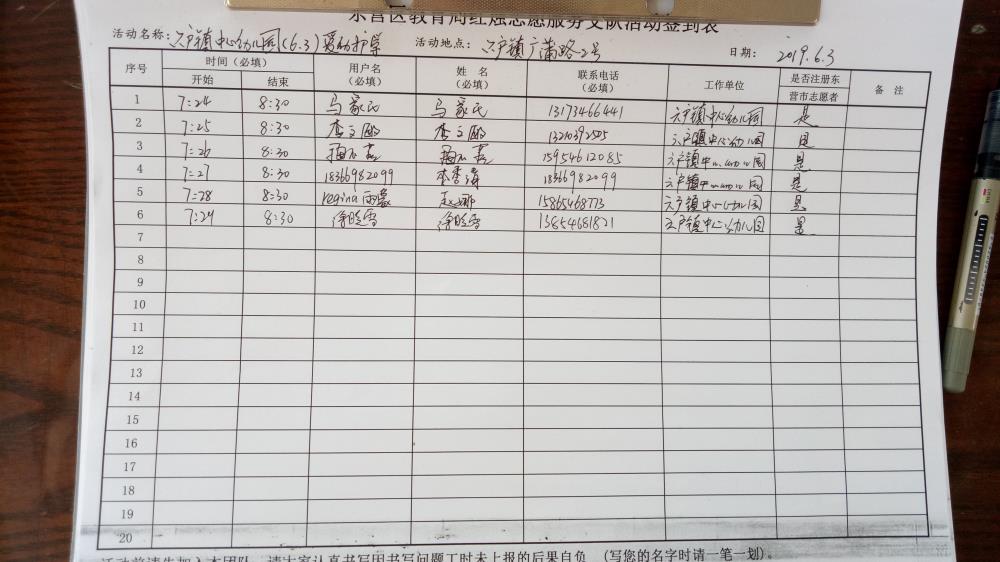 东营区教育局红烛志愿服务支队活动签到表
活动名称: 六户镇中心幼儿园(6.3) 活动地点: 六户镇广蒲路2号 日期: 2019.6.3
序号 时间（必填） 用户名（必填） 姓 名（必填） 联系电话（必填） 工作单位 是否注册东营市志愿者 备 注
开始 结束
1 7:24 8:30 13173466441 六户镇中心幼儿园 是
2 7:25 8:30 13210392505 六户镇中心幼儿园 是
3 7:26 8:30 15954612085 六户镇中心幼儿园 是
4 7:27 8:30 18366982099 18366982099 六户镇中心幼儿园 是
5 7:28 8:30 regina 赵娜 15865468773 六户镇中心幼儿园 是
6 7:29 8:30 徐晓雪 徐晓雪 13654681821 六户镇中心幼儿园 是
7
8
9
10
11
12
13
14
15
16
17
18
19
20
活动前请先加入本团队，请大家认真书写因书写问题工时未上报的后果自负 （写您的名字时请一笔一划）。